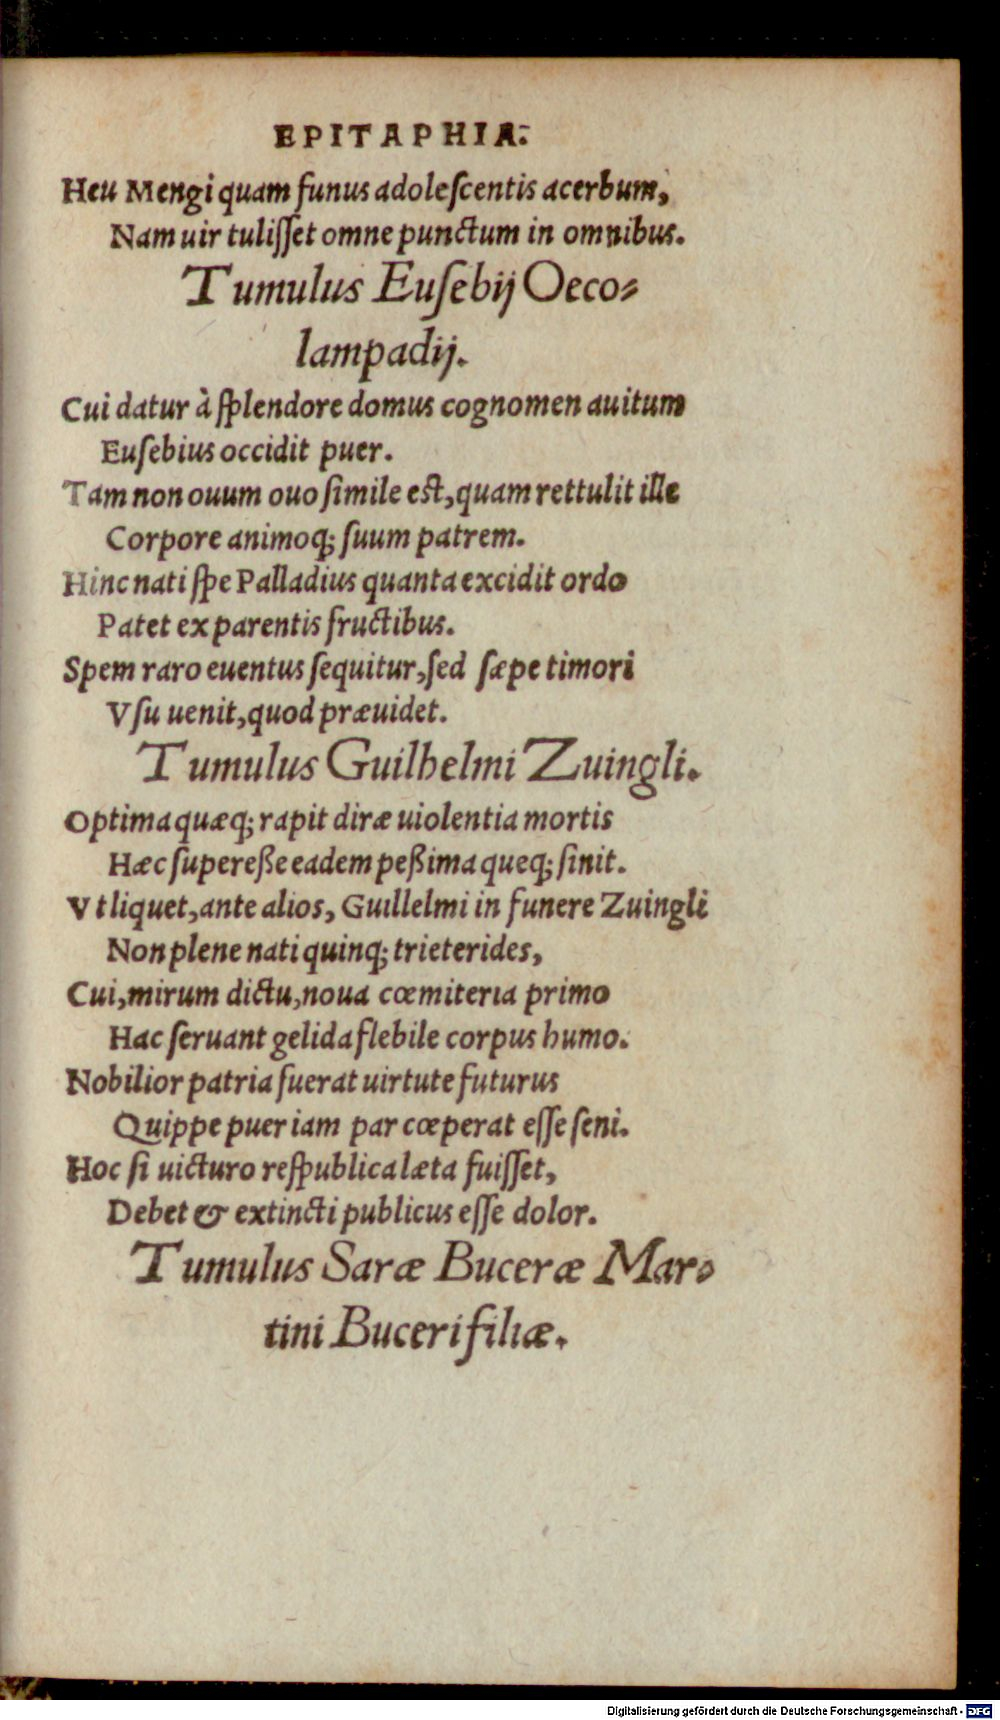 EPITAPHIA.
Heu Mengi quam funus adoleſcentis acerbum,
Nam uir tuliſſet omne punctum in omnibus.
Tumulus Euſebij Oeco-
lampadij.
Cui datur à ſplendore domus cognomen auitum
Euſebius occidit puer.
Tam non ouum ouo ſimile est, quam rettulit ille
Corpore animoq; ſuum patrem.
Hinc nati ſpe Palladius quanta excidit ordo
Patet ex parentis fructibus.
Spem raro euentus ſequitur, ſed ſæpe timori
Vſu uenit, quod præuidet.
Tumulus Guilhelmi Zuingli.
Optima quæq; rapit diræ uiolentia mortis
Hæc ſupereße eadem peßima queq; ſinit.
Vt liquet, ante alios, Guillelmi in funere Zuingli
Non plene nati quinq; trieterides,
Cui, mirum dictu, noua cœmiteria primo
Hac ſeruant gelida flebile corpus humo.
Nobilior patria fuerat uirtute futurus
Quippe puer iam par cœperat eſſe ſeni.
Hoc ſi uicturo reſpublica læta fuiſſet,
Debet & extincti publicus eſſe dolor.
Tumulus Saræ Buceræ Mar-
tini Buceri filiæ.
Digitalisierung gefördert durch die Deutsche Forschungsgemeinschaft - DFG